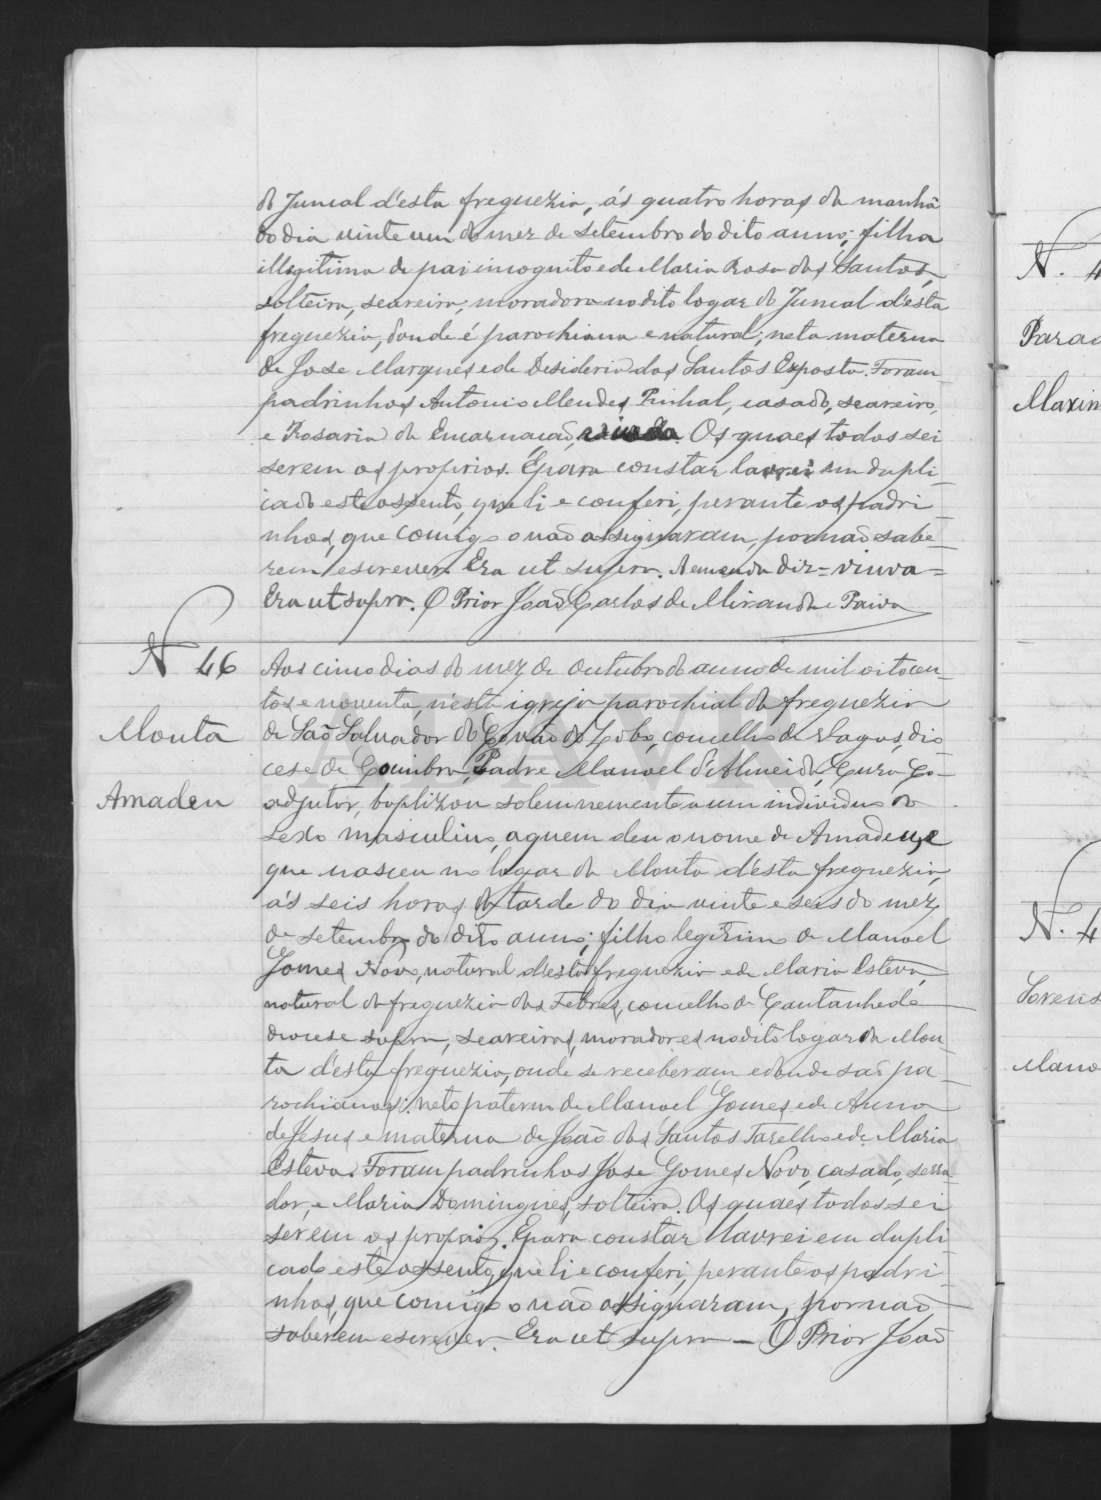 do Juncal d'esta freguezia, ás quatro horas da manhã
do dia vinte um do mez de setembro do dito anno; filha
illegitima de pai incognito e de Maria Rosa dos Santos,
solteira, seareira, moradora no dito logar do Juncal d'esta
freguezia, donde é parochiana e natural; neta materna
de José Marques e de Desideria dos Santos Exposta. Foram
padrinhos Antonio Mendes Pinhal, casado, seareiro,
e Rosaria da Encarnação, viuva. Os quaes todos sei
serem os proprios. E para constar lavrei em dupli-
cado este assento, que li e conferi, perante os padri-
nhos, que comigo o não assignaram, por não sabe-
rem escrever. Era ut supra. A emenda diz = viuva =
Era ut supra. O Prior João Carlos de Miranda e Paiva
N 46
Mouta
Amadeu
Aos cinco dias do mez de Outubro do anno de mil oitocen-
tos e noventa, n'esta igreja parochial da freguezia
de São Salvador do Covão do Lobo, concelho de Vagos, dio-
cese de Coimbra, Padre Manoel d'Almeida, Cura Co-
adjutor, baptizou solemnemente a um individuo do
sexo masculino, a quem deu o nome de Amadeu, e
que nasceu no logar da Mouta d'esta freguezia,
ás seis horas da tarde do dia vinte e seis do mez
de setembro do dito anno; filho legitimo de Manoel
Gomes Novo, natural d'esta freguezia e de Maria Esteva,
natural da freguezia das Febres, concelho de Cantanhede
diocese supra, seareiros, moradores no dito logar da Mou-
ta d'esta freguezia, onde se receberam e donde são pa-
rochianos; neto paterno de Manoel Gomes e de Anna
de Jesus e materno de João dos Santos Tarelho e de Maria
Esteva. Foram padrinhos José Gomes Novo, casado, serra-
dor, e Maria Domingues, solteira. Os quaes todos sei
serem os proprios. E para constar lavrei em dupli-
cado este assento, que li e conferi, perante os padri-
nhos, que comigo o não assignaram, por não
saberem escrever. Era ut supra — O Prior João
N. 4
Parad
Maxim
N. 4
Lorens
Mano